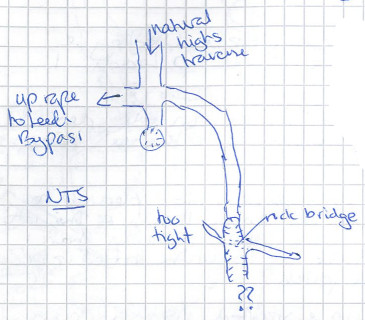 natural
highs
traverse
up rope
to Leedi
Bypass
NTS
too
tight
rock bridge
??